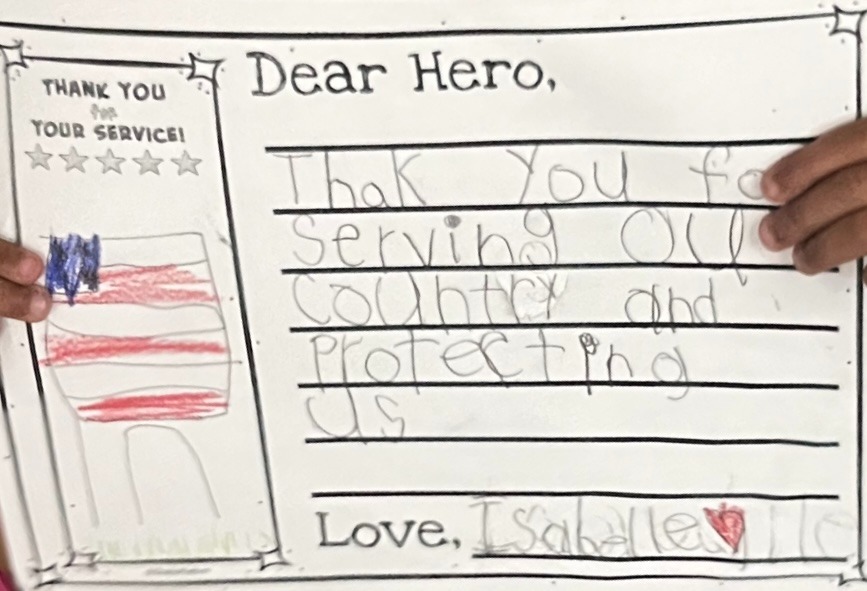 THANK YOU
for
YOUR SERVICE!
Dear Hero,
Thak You fo
Serving our
Country and
Protecting
Us
Love, Isabelle